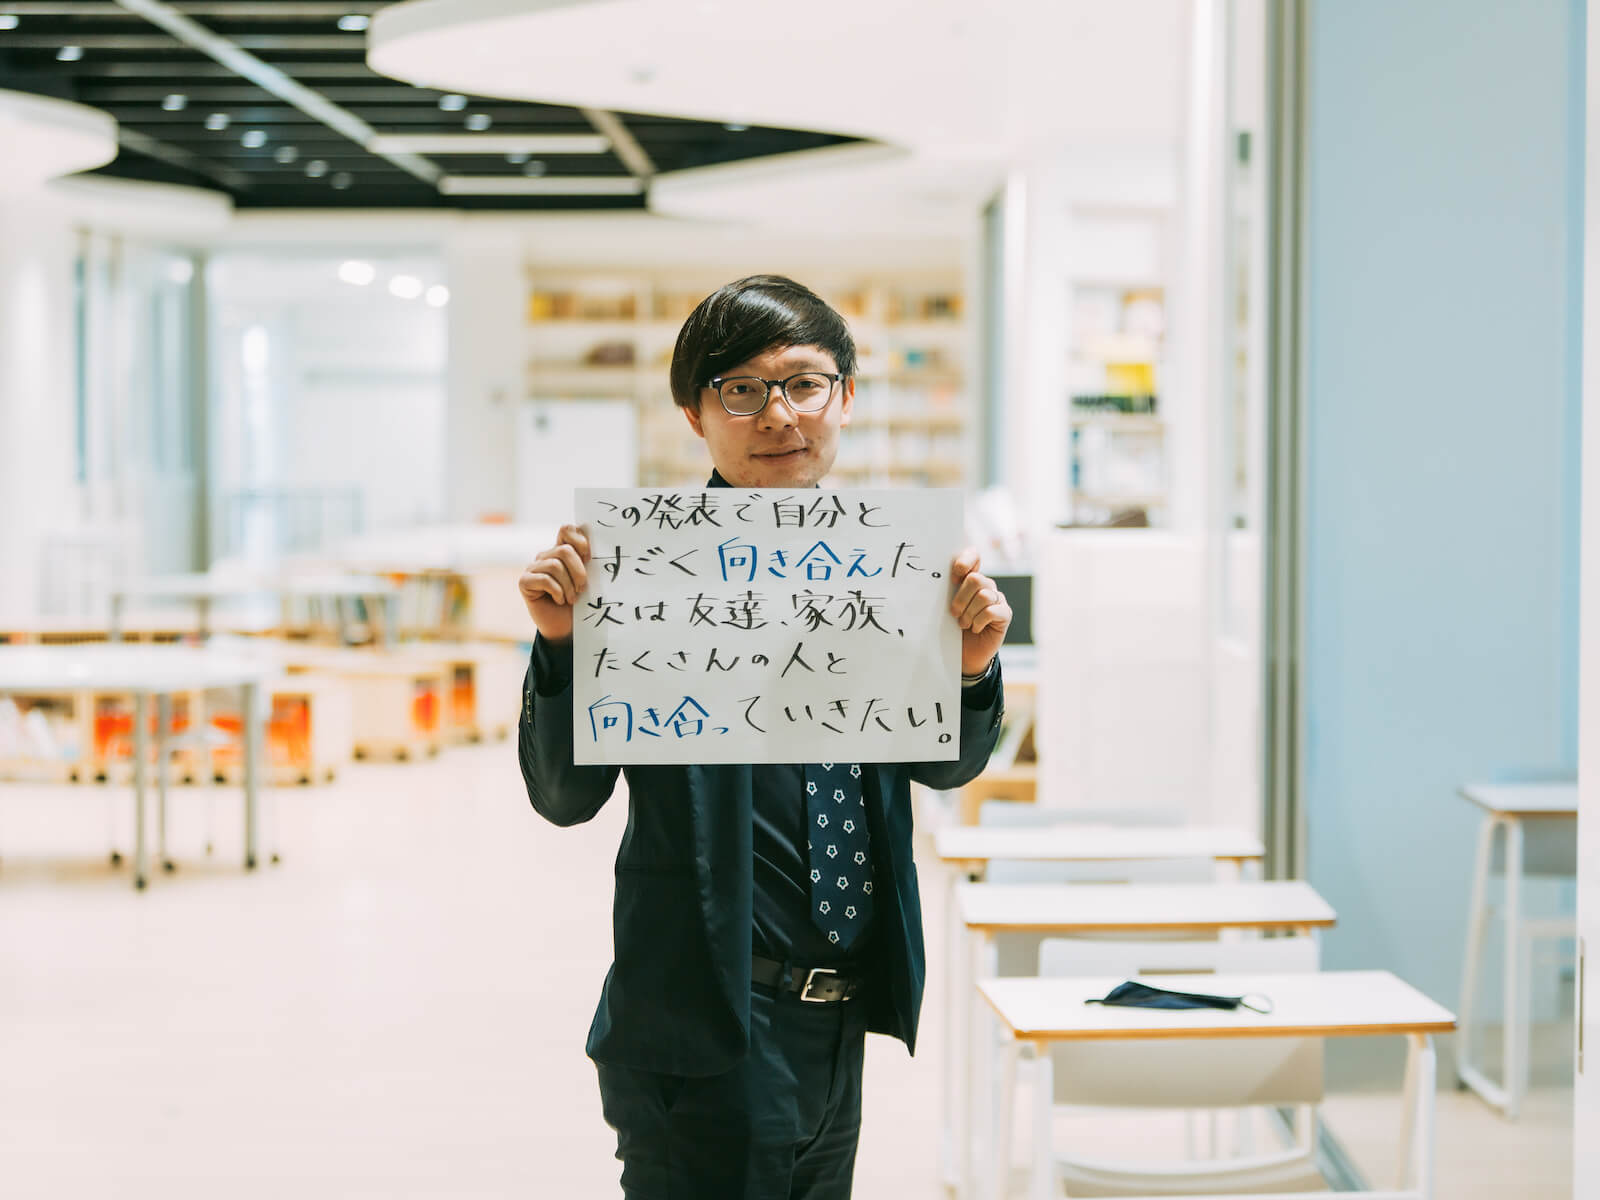 この発表で自分と
すごく向き合えた。
次は友達、家族、
たくさんの人と
向き合っていきたい!。